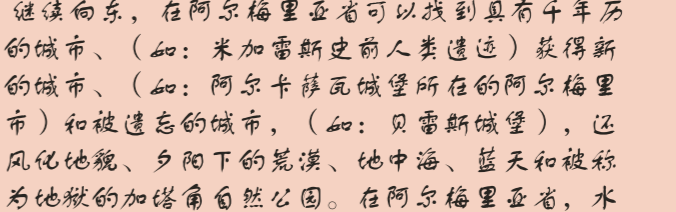 继续向东，在阿尔梅里亚省可以找到具有千年历
的城市、（如：米加雷斯史前人类遗迹）获得新
的城市、（如：阿尔卡萨瓦城堡所在的阿尔梅里
市）和被遗忘的城市，（如：贝雷斯城堡），还
风化地貌、夕阳下的荒漠、地中海、蓝天和被称
为地狱的加塔角自然公园。在阿尔梅里亚省，水